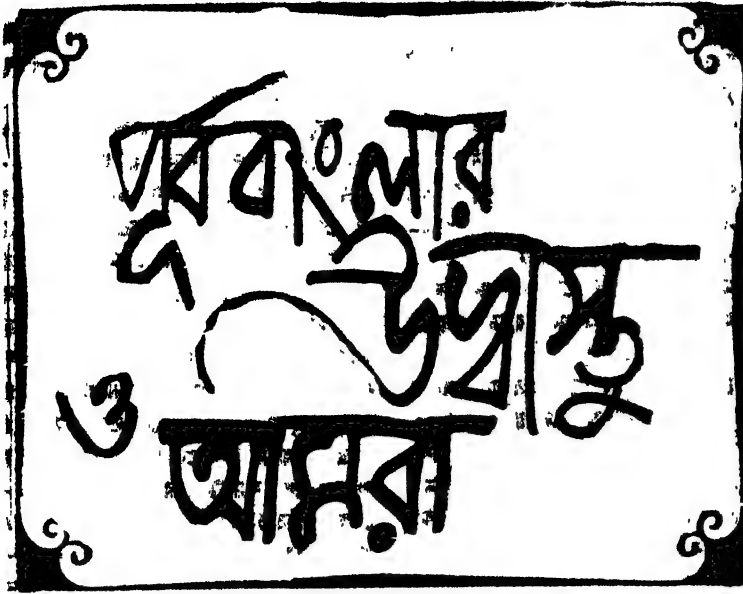 পূর্ববাংলার
উদ্বাস্তু
ও আমরা